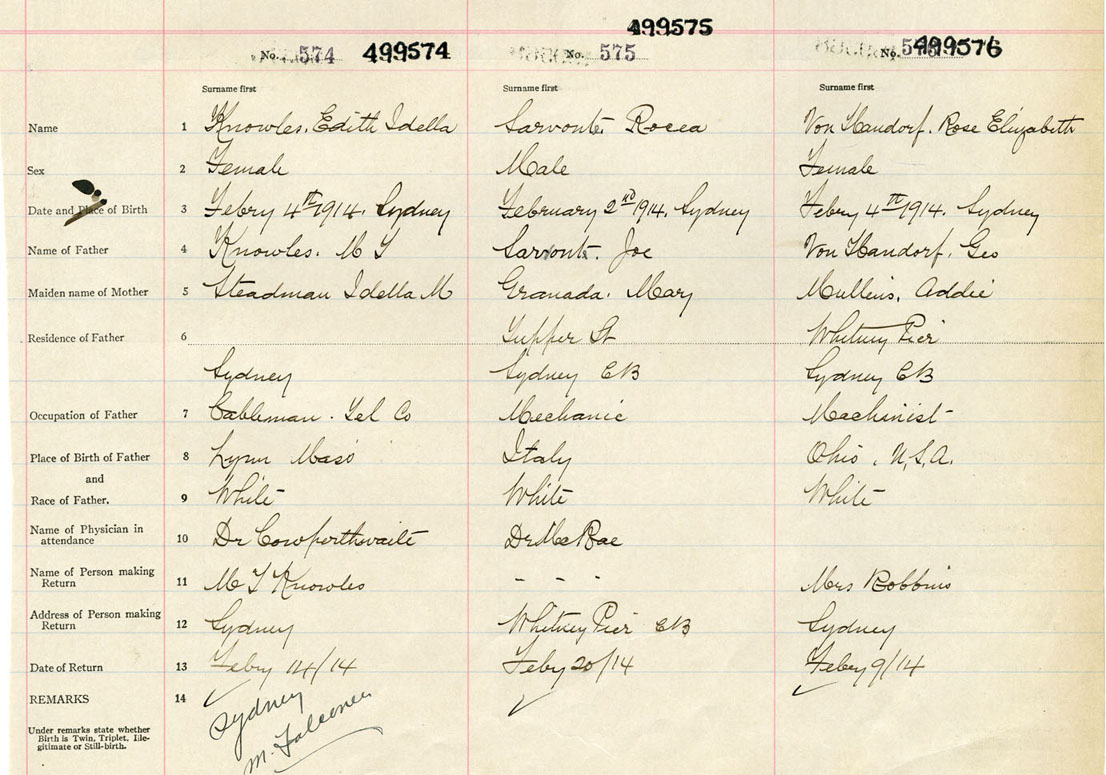 499575
No. 574 499574 No. 575 No. 576 499576
Surname first Surname first Surname first
Name 1 Knowles. Edith Idella Sarvonte Rocca Von Handorf. Rose Elizabeth
Sex 2 Female Male Female
Date and Place of Birth 3 Febry 4th 1914. Sydney February 2nd 1914. Sydney Febry 4th 1914. Sydney
Name of Father 4 Knowles. M Sarvonte. Joe Von Handorf. Geo
Maiden name of Mother 5 Steadman Idella M Granada. Mary Mullins. Addie
Residence of Father 6 Tupper St Whitney Pier
Sydney Sydney CB Sydney CB
Occupation of Father 7 Cableman. Tel Co Mechanic Machinist
Place of Birth of Father 8 Lynn Mass Italy Ohio. U.S.A.
and
Race of Father. 9 White White White
Name of Physician in
attendance 10 Dr Cowperthwaite Dr McRae
Name of Person making
Return 11 M Knowles - - - Mrs Robbins
Address of Person making
Return 12 Sydney Whitney Pier CB Sydney
Date of Return 13 Feby 14/14 Feby 20/14 Febry 9/14
REMARKS 14 ✓ ✓ ✓
Sydney
M. Falconer
Under remarks state whether
Birth is Twin, Triplet, Ille-
gitimate or Still-birth.